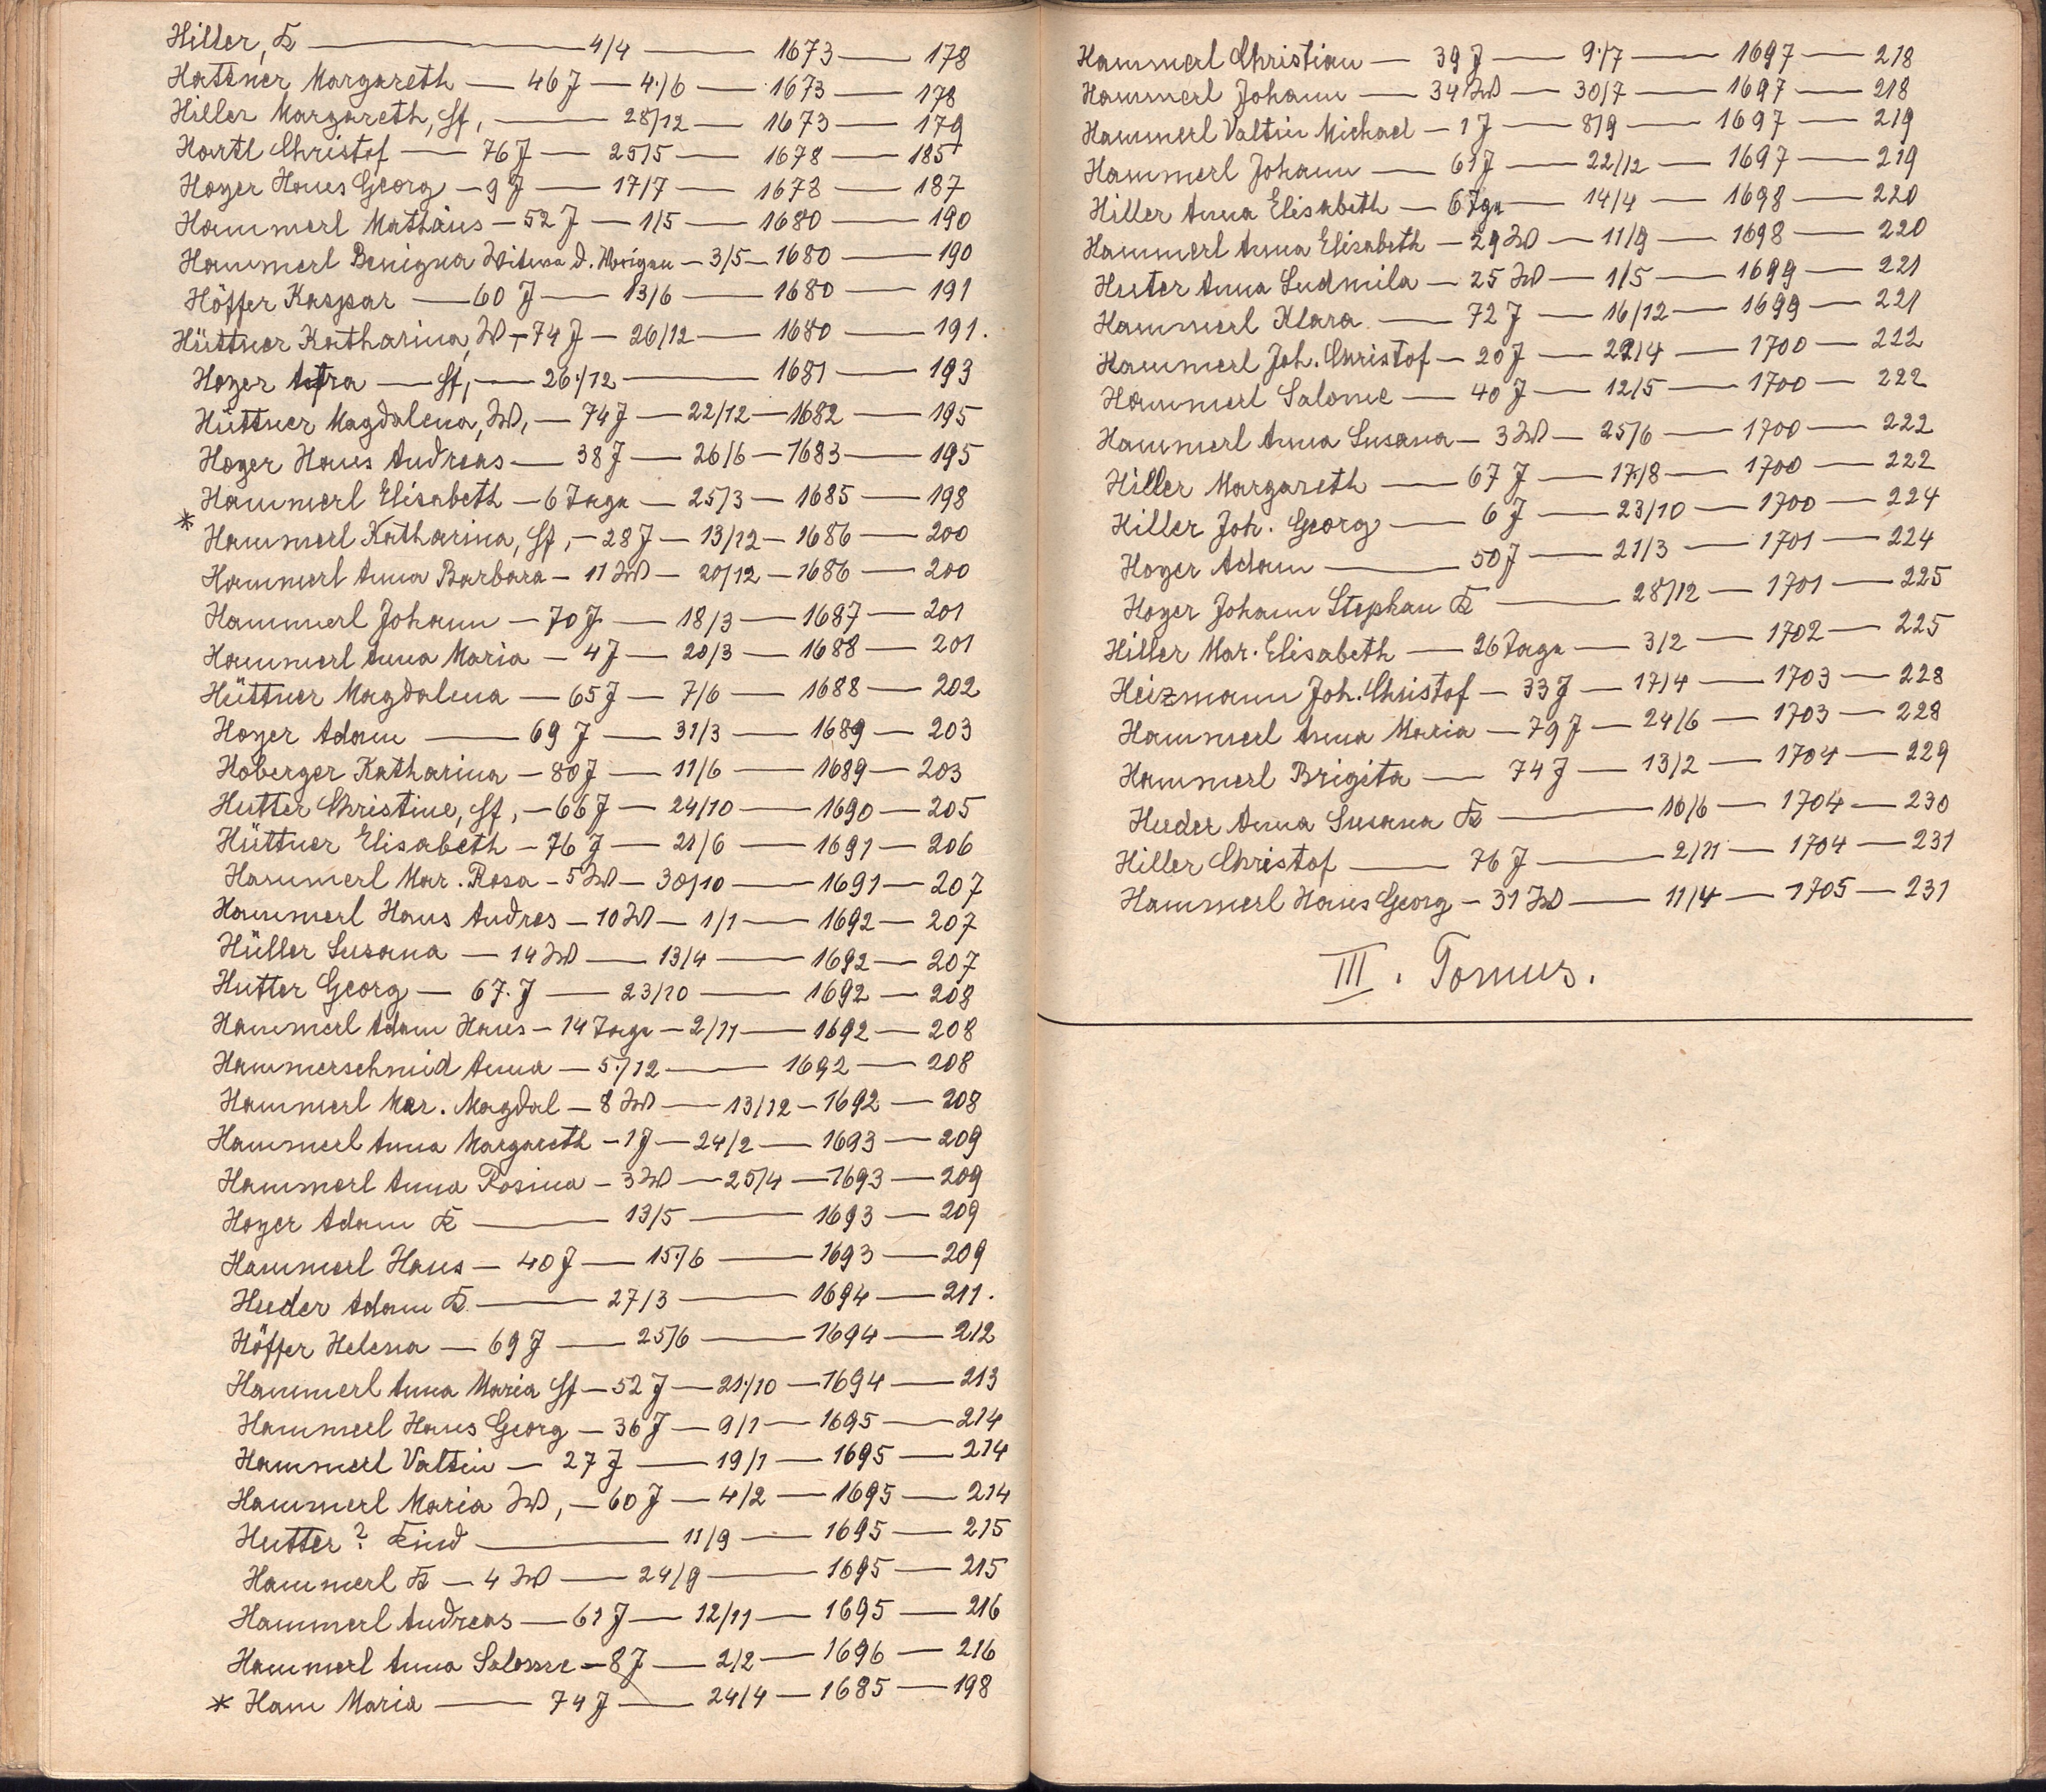 Hiller, K — 4/4 — 1673 — 178
Hattner Margareth — 46 J — 4./6 — 1673 — 178
Hiller Margareth, Sf, — 28/12 — 1673 — 179
Hartl Christof — 76 J — 25/5 — 1678 — 185
Hoyer Hans Georg — 9 J — 17/7 — 1678 — 187
Hammerl Mathäus — 52 J — 1/5 — 1680 — 190
Hammerl Benigna Witwe d. — 3/5 — 1680 — 190
Höffer Kaspar — 60 J — 13/6 — 1680 — 191
Hüttner Katharina, W, — 74 J — 26/12 — 1680 — 191.
Hoyer — Sf, — 26./12 — 1681 — 193
Hüttner Magdalena, W, — 74 J — 22/12 — 1682 — 195
Hoyer Hans Andreas — 38 J — 26/6 — 1683 — 195
Hammerl Elisabeth — 6 Tage — 25/3 — 1685 — 198
* Hammerl Katharina, Sf, — 28 J — 13/12 — 1686 — 200
Hammerl Anna Barbara — 11 W — 20/12 — 1686 — 200
Hammerl Johann — 70 J — 18/3 — 1687 — 201
Hammerl Anna Maria — 4 J — 20/3 — 1688 — 201
Hüttner Magdalena — 65 J — 7/6 — 1688 — 202
Hoyer Adam — 69 J — 31/3 — 1689 — 203
Hoberger Katharina — 80 J — 11/6 — 1689 — 203
Hutter Christine, Sf, — 66 J — 24/10 — 1690 — 205
Hüttner Elisabeth — 76 J — 21/6 — 1691 — 206
Hammerl Mar. Rosa — 5 W — 30/10 — 1691 — 207
Hammerl Hans Andres — 10 W — 1/1 — 1692 — 207
Hüller Susana — 14 W — 13/4 — 1692 — 207
Hutter Georg — 67. J — 23/10 — 1692 — 208
Hammerl Adam Hans — 14 Tage — 2/11 — 1692 — 208
Hammerschmid Anna — 5./12 — 1692 — 208
Hammerl Mar. Magdal — 8 W — 13/12 — 1692 — 208
Hammerl Anna Margareth — 1 J — 24/2 — 1693 — 209
Hammerl Anna Rosina — 3 W — 25/4 — 1693 — 209
Hoyer Adam K — 13/5 — 1693 — 209
Hammerl Hans — 40 J — 15./6 — 1693 — 209
Hueder Adam K. — 27/3 — 1694 — 211.
Höffer Helena — 69 J — 25/6 — 1694 — 212
Hammerl Anna Maria Sf — 52 J — 21./10 — 1694 — 213
Hammerl Hans Georg — 36 J — 9/1 — 1695 — 214
Hammerl Valtin — 27 J — 19/1 — 1695 — 214
Hammerl Maria W, — 60 J — 4/2 — 1695 — 214
Hutter? Kind — 11/9 — 1695 — 215
Hammerl K — 4 W — 24/9 — 1695 — 215
Hammerl Andreas — 61 J — 12/11 — 1695 — 216
Hammerl Anna Salome — 8 J — 2/2 — 1696 — 216
* Ham Maria — 74 J — 24/4 — 1685 — 198
Hammerl Christian — 39 J — 9./7 — 1697 — 218
Hammerl Johann — 34 W — 30/7 — 1697 — 218
Hammerl Valtin Michael — 1 J — 8/9 — 1697 — 219
Hammerl Johann — 61 J — 22/12 — 1697 — 219
Hiller Anna Elisabeth — 6 Tge — 14/4 — 1698 — 220
Hammerl Anna Elisabeth — 29 W — 11/9 — 1698 — 220
Huter Anna Ludmila — 25 W — 1/5 — 1699 — 221
Hammerl Klara — 72 J — 16/12 — 1699 — 221
Hammerl Joh. Christof — 20 J — 22/4 — 1700 — 222
Hammerl Salome — 40 J — 12/5 — 1700 — 222
Hammerl Anna Susana — 3 W — 25/6 — 1700 — 222
Hiller Margareth — 67 J — 17./8 — 1700 — 222
Hiller Joh. Georg — 6 J — 23/10 — 1700 — 224
Hoyer Adam — 50 J — 21/3 — 1701 — 224
Hoyer Johann Stephan K — 28/12 — 1701 — 225
Hiller Mar. Elisabeth — 26 Tage — 3/2 — 1702 — 225
Heizmann Joh. Christof — 33 J — 17/4 — 1703 — 228
Hammerl Anna Maria — 79 J — 24/6 — 1703 — 228
Hammerl Brigita — 74 J — 13/2 — 1704 — 229
Hueder Anna Susana K — 10/6 — 1704 — 230
Hiller Christof — 76 J — 2/11 — 1704 — 231
Hammerl Hans Georg — 31 W — 11/4 — 1705 — 231
III. Tomus.